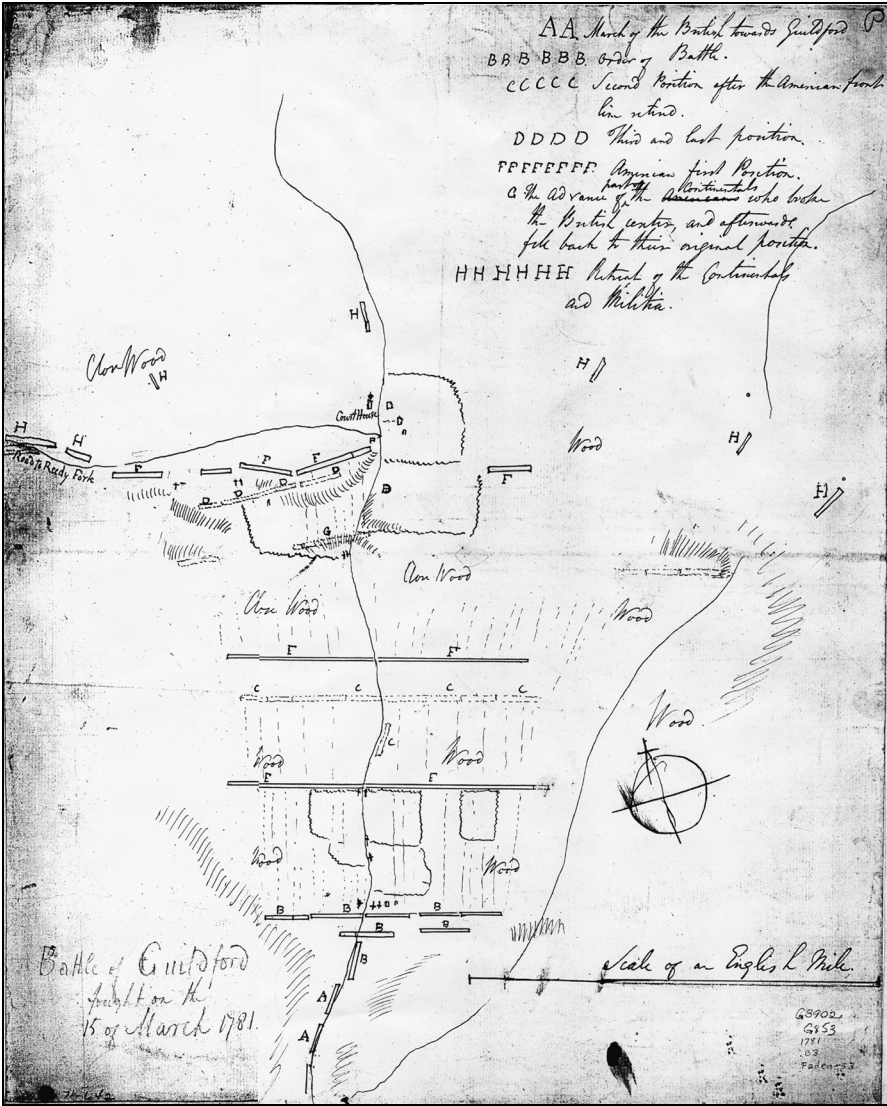 AA March of the British towards Guildford
BBB BBB Order of Battle.
CCCCC Second Position after the American front
line retired.
DDDD Third and last position.
FFFFFFFF. American first Position.
G The Advance part of the Americans Continentals who broke
the British centre, and afterwards
fell back to their original position.
HHHHHH Retreat of the Continentals
and Militia.
H
Clear Wood
H
H
Court House
H
H
Wood
H
Road to Reedy Fork
F
F
F
F
H
D
D
D
D
D
G
Clear Wood
Close Wood
Wood
F
F
C
C
C
C
Wood
C
Wood
Wood
F
F
Wood
Wood
B
B
B
B
B
B
Battle of Guildford
fought on the
15 of March 1781.
Scale of an English Mile.
A
A
G3902
G853
1781
.B3
Faden 53